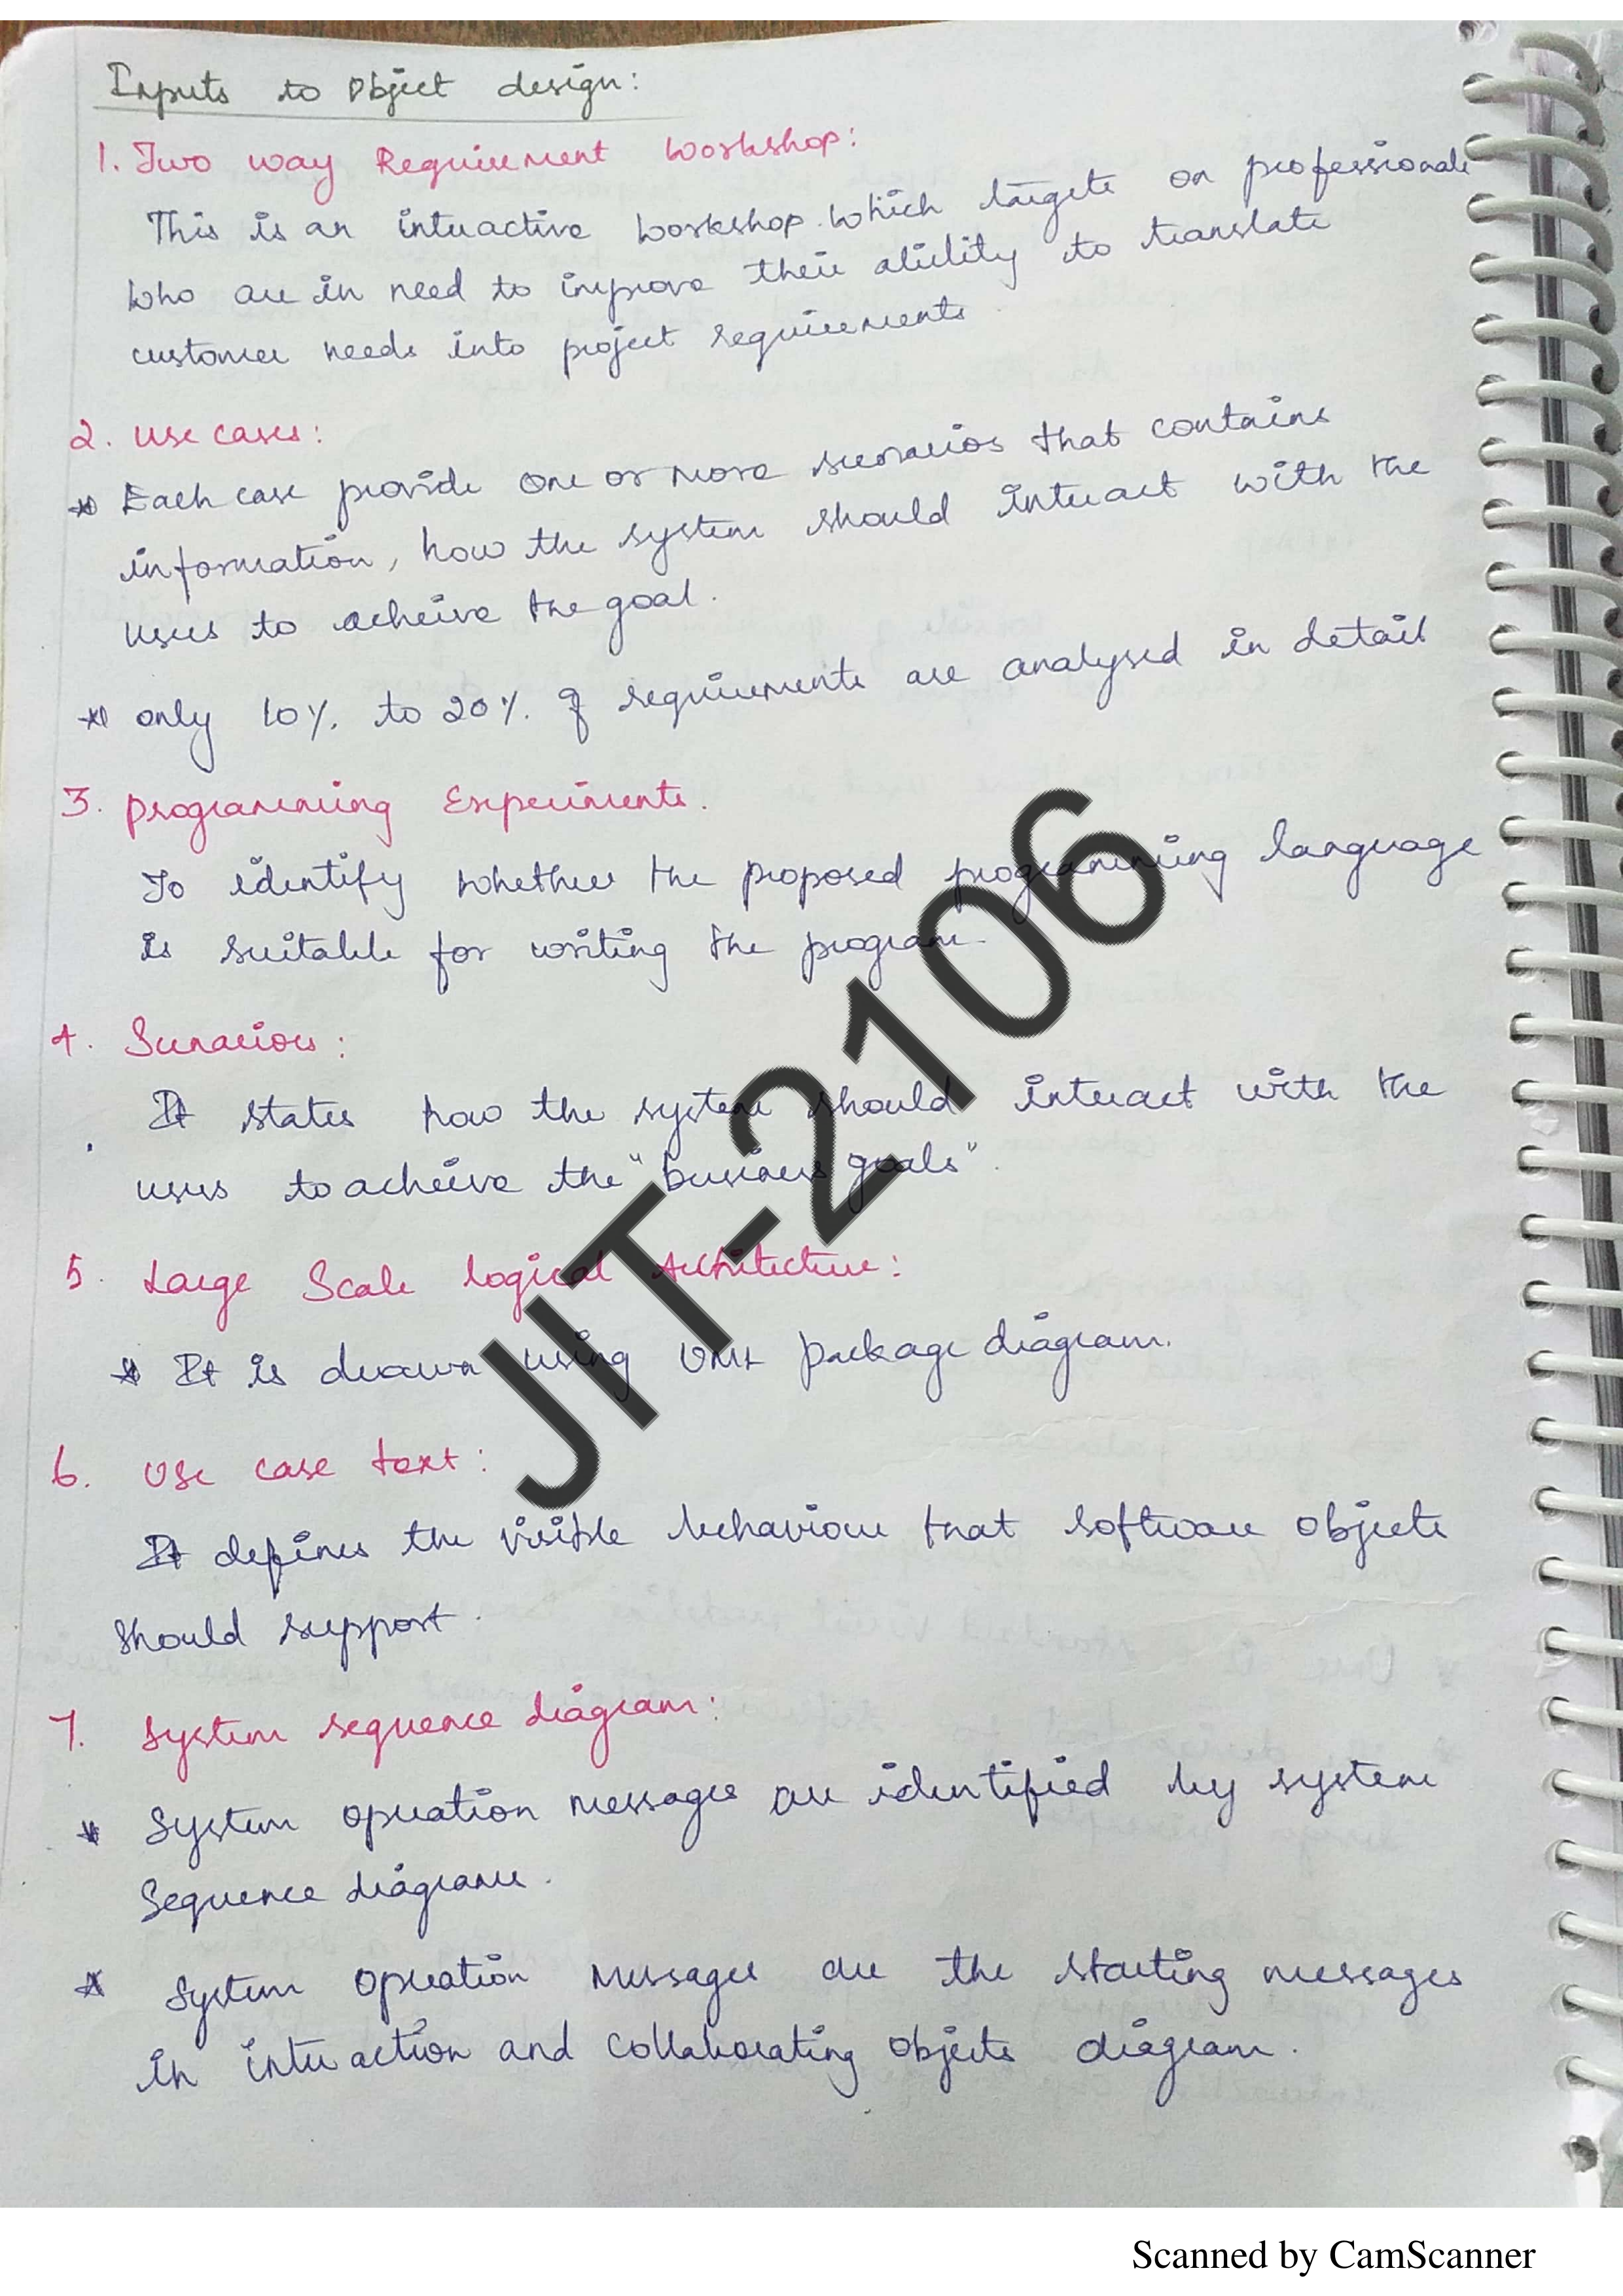 Inputs to Object design:
1. Two way Requirement Workshop:
This is an interactive workshop which targets on professionals
who are in need to improve their ability to translate
customer needs into project requirements
2. Use cases:
* Each case provide one or more scenarios that contains
information, how the system should interact with the
users to acheive the goal.
* only 10% to 20% of requirements are analysed in detail
3. Programming Experiments.
To identify whether the proposed programming language
is suitable for writing the program.
4. Scenarios:
It states how the system should interact with the
users to acheive the "business goals".
5. Large Scale logical Architecture:
* It is drawn using UML package diagram.
6. Use case text:
It defines the visible behaviour that software objects
should support.
7. System sequence diagram:
* System operation messages are identified by system
Sequence diagrams.
* System operation messages are the starting messages
in interaction and collaborating objects diagram.
JIT-2106
Scanned by CamScanner